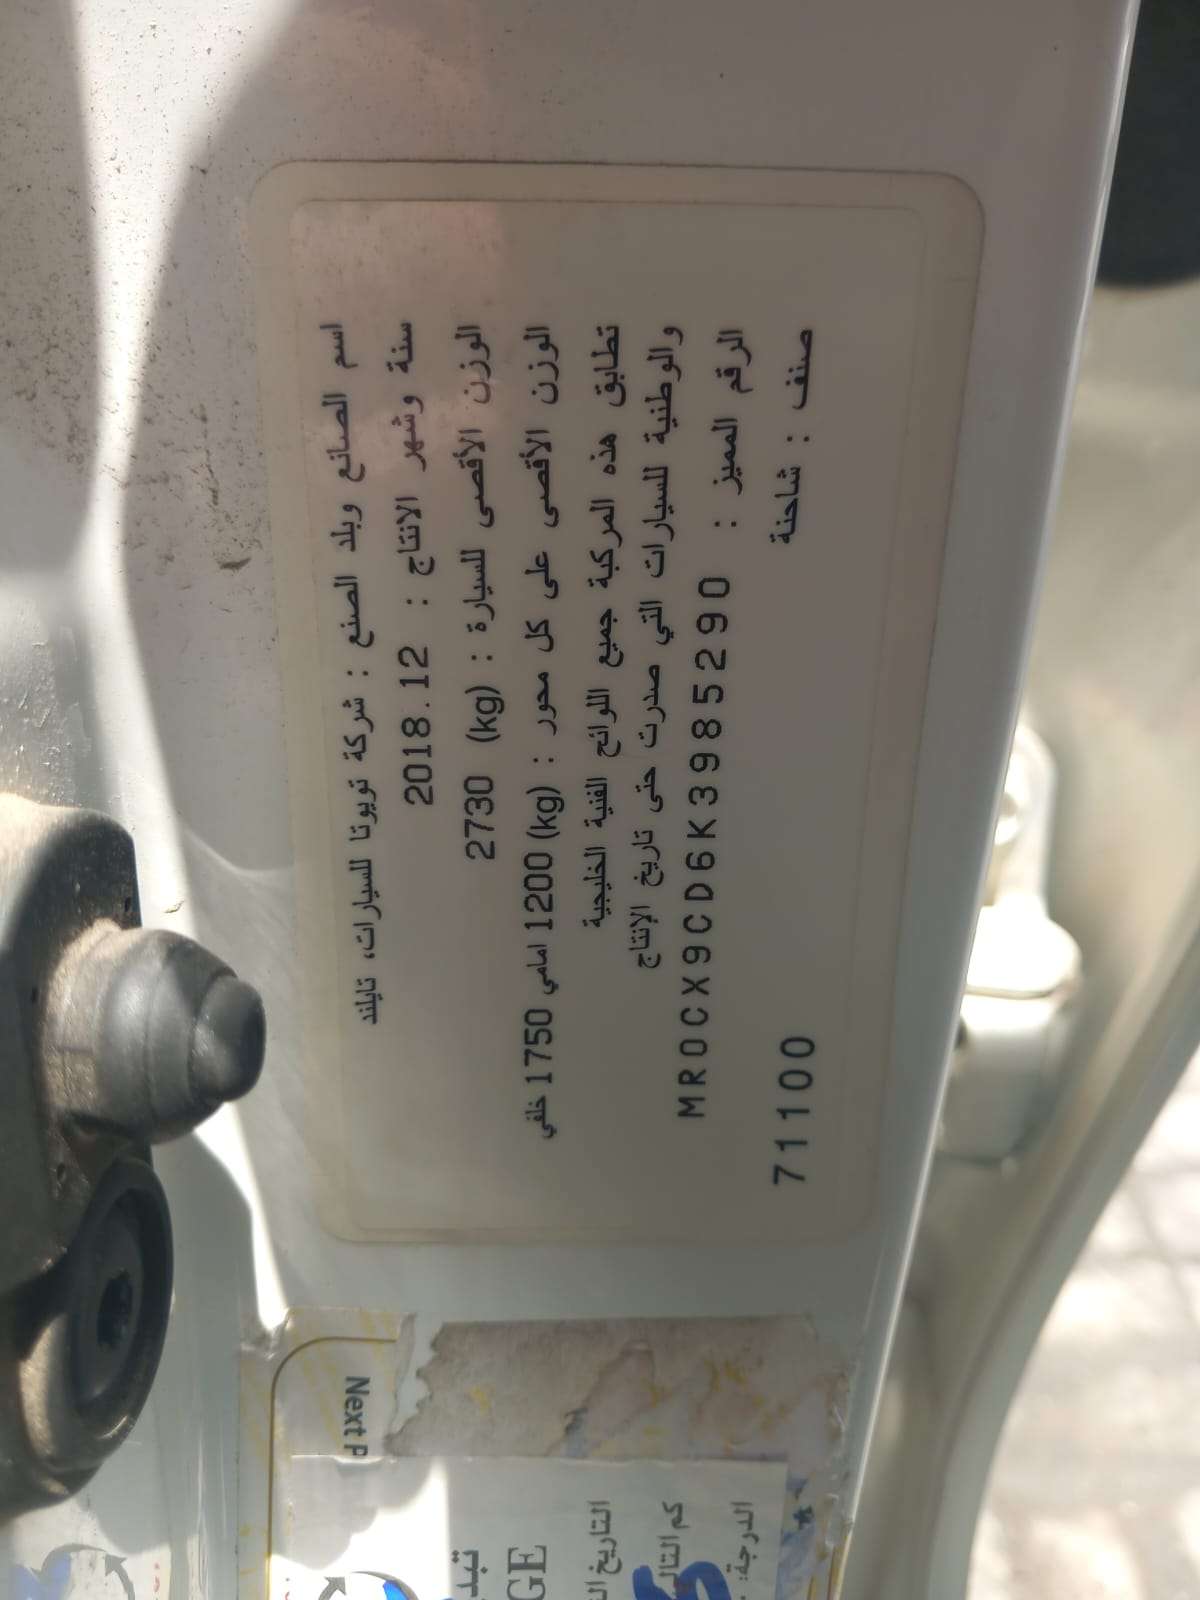 اسم الصانع وبلد الصنع : شركة تويوتا للسيارات، تايلند
سنة وشهر الانتاج : 2018.12
الوزن الأقصى للسيارة : (kg) 2730
الوزن الأقصى على كل محور : (kg) 1200 امامي 1750 خلفي
تطابق هذه المركبة جميع اللوائح الفنية الخليجية
والوطنية للسيارات التي صدرت حتى تاريخ الإنتاج
الرقم المميز : MR0CX9CD6K3985290
صنف : شاحنة 71100
Next P
GE
التاريخ
كم التالي
الدرجة: